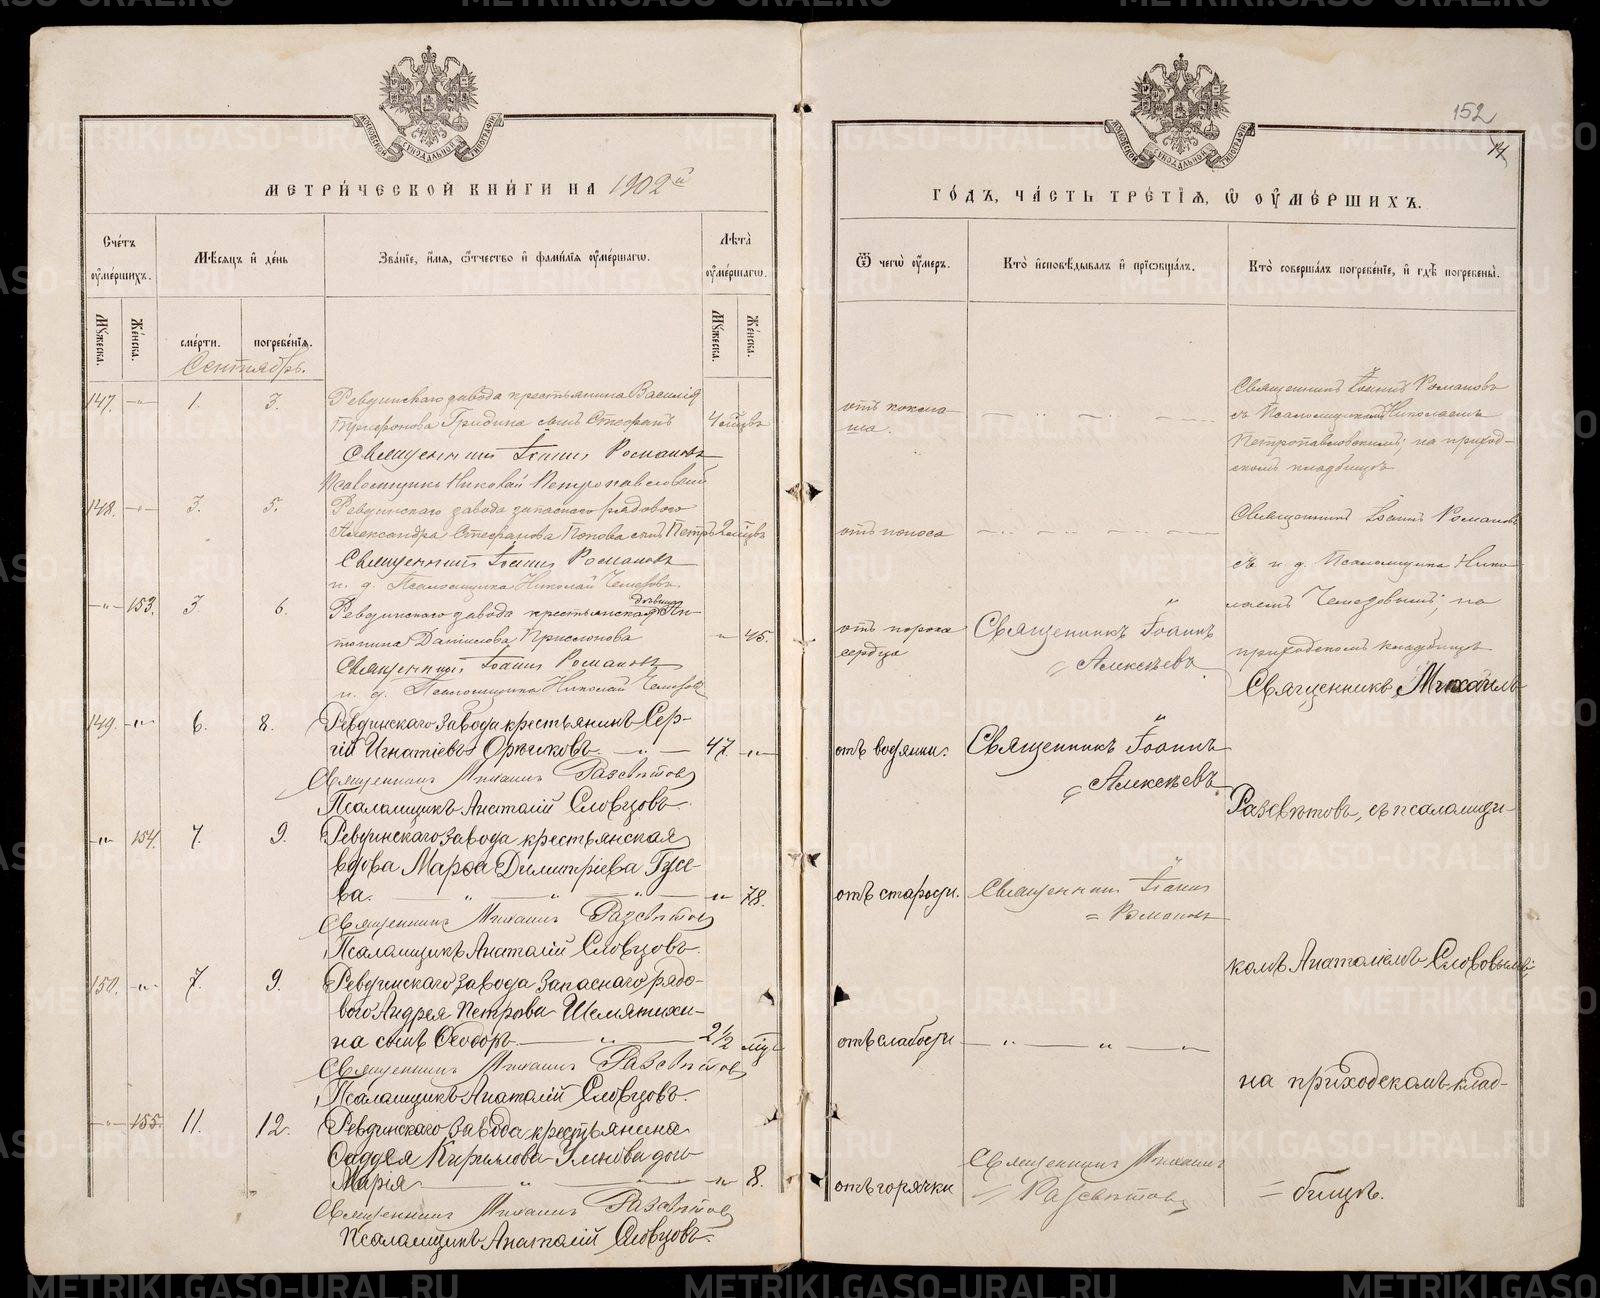 МЕТРИ́ЧЕСКОЙ КНИ́ГИ НА 1902й
Сче́тъ ᲂу҆ме́ршихъ.
Мѣ́сяцъ и҆ де́нь
Зва́нїе, и҆́мя, ѻ҆́тчество и҆ фами́лїя ᲂу҆ме́ршагѡ.
Лѣ́та ᲂу҆ме́ршагѡ.
Мꙋ́жеска.
Же́нска.
сме́рти.
погребе́нїя.
Мꙋ́жеска.
Же́нска.
Сентябрь.
147. —„— 1. 3. Ревдинскаго завода крестьянина Василія
Трифонова Гридина сынъ Стефанъ 4 мѣцвъ
Священникъ Іоаннъ Романовъ
Псаломщикъ Николай Петропавловскій
148. —„— 3. 5. Ревдинскаго завода запаснаго рядового
Александра Стефанова Попова сынъ Петръ 2 мѣцвъ
Священникъ Іоаннъ Романовъ
и. д. Псаломщика Николай Чемезовъ
—„— 153. 3. 6. Ревдинскаго завода крестьянская дѣвица Ан-
тонина Данилова
„ 45.
Священникъ Іоаннъ Романовъ
и. д. Псаломщика Николай Чемезовъ
149. —„— 6. 8. Ревдинскаго завода крестьянинъ Сер-
гій Игнатіевъ 47. —„—
Священникъ Михаилъ Разсвѣтовъ
Псаломщикъ Анатолій Словцовъ.
—„— 154. 7. 9. Ревдинскаго завода крестьянская
вдова Марѳа Димитріева Гусе-
ва. — „ — „ — „ — „ 78.
Священникъ Михаилъ Разсвѣтовъ
Псаломщикъ Анатолій Словцовъ.
150. —„— 7. 9. Ревдинскаго завода запаснаго рядо-
вого Андрея Петрова Шемятихи-
на сынъ Ѳеодоръ. 2½ мѣц.
Священникъ Михаилъ Разсвѣтовъ
Псаломщикъ Анатолій Словцовъ.
—„— 155. 11. 12. Ревдинскаго завода крестьянина
Ѳаддея Кирилова дочь
Марія. — „ 8.
Священникъ Михаилъ Разсвѣтовъ
Псаломщикъ Анатолій Словцовъ.
152
14
ГО́ДЪ, ЧА́СТЬ ТРЕ́ТЇЯ, Ѡ҆ ОУ҆МЕ́РШИХЪ.
Ѿ чегѡ̀ ᲂу҆́меръ.
Кто̀ и҆сповѣ́дывалъ и҆ прїѡбща́лъ.
Кто̀ соверша́лъ погребе́нїе, и҆ гдѣ̀ погребены̀.
отъ коклю-
ша.
Священникъ Іоаннъ Романовъ
съ Псаломщикомъ Николаемъ
Петропавловскимъ; на приход-
скомъ кладбищѣ
отъ поноса
Священникъ Іоаннъ Романовъ
съ и. д. Псаломщика Нико-
лаемъ Чемезовымъ; на
приходскомъ кладбищѣ
отъ порока
сердца
Священникъ Іоаннъ
Алексѣевъ
Священникъ Михаилъ
отъ водянки.
Священникъ Іоаннъ
Алексѣевъ
Разсвѣтовъ, съ псаломщи-
отъ старости.
Священникъ Іоаннъ
= Романовъ
комъ Анатоліемъ Словцовымъ
отъ слабости
на приходскомъ клад-
отъ горячки
Священникъ Михаилъ
= Разсвѣтовъ
= бищѣ.
METRIKI.GASO-URAL.RU